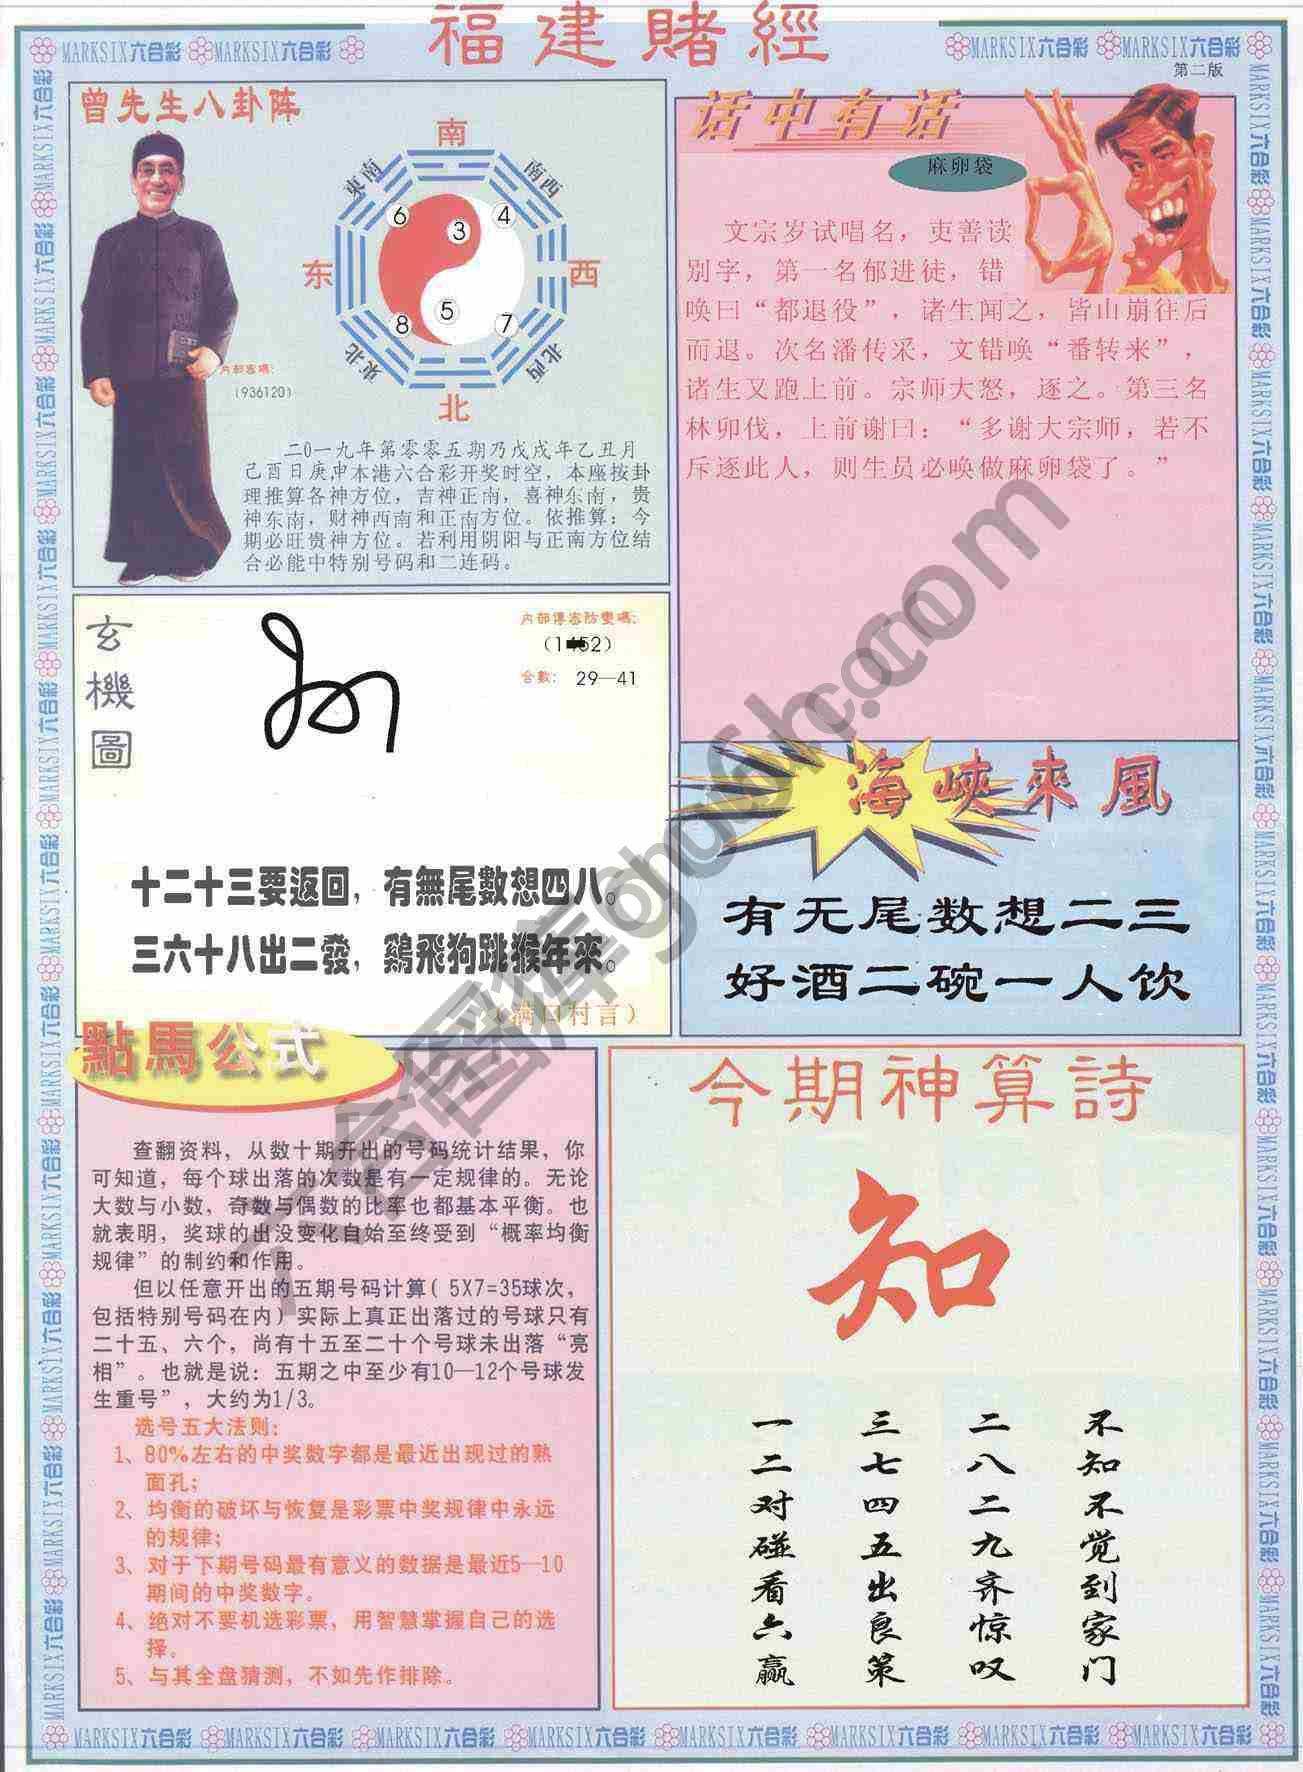 福建賭經
第二版
MARKSIX六合彩 MARKSIX六合彩
MARKSIX六合彩 MARKSIX六合彩
曾先生八卦阵
南
東南
南西
6
3
4
东
西
5
8
7
東北
北西
北
内部密碼:
(936120)
二0一九年第零零五期乃戊戌年乙丑月
己酉日庚申本港六合彩开奖时空，本座按卦
理推算各神方位，吉神正南，喜神东南，贵
神东南，财神西南和正南方位。依推算：今
期必旺贵神方位。若利用阴阳与正南方位结
合必能中特别号码和二连码。
话中有话
麻卵袋
文宗岁试唱名，吏善读
别字，第一名郁进徒，错
唤曰“都退役”，诸生闻之，皆山崩往后
而退。次名潘传采，文错唤“番转来”，
诸生又跑上前。宗师大怒，逐之。第三名
林卯伐，上前谢曰：“多谢大宗师，若不
斥逐此人，则生员必唤做麻卵袋了。”
玄機圖
内部傳密防變碼:
合數: 29—41
十二十三要返回，有無尾數想四八。
三六十八出二發，鷄飛狗跳猴年來。
（满口村言）
海峽來風
有无尾数想二三
好酒二碗一人饮
點馬公式
查翻资料，从数十期开出的号码统计结果，你
可知道，每个球出落的次数是有一定规律的。无论
大数与小数，奇数与偶数的比率也都基本平衡。也
就表明，奖球的出没变化自始至终受到“概率均衡
规律”的制约和作用。
但以任意开出的五期号码计算( 5X7=35球次，
包括特别号码在内)实际上真正出落过的号球只有
二十五、六个，尚有十五至二十个号球未出落“亮
相”。也就是说：五期之中至少有10—12个号球发
生重号”，大约为1/3。
选号五大法则:
1、80%左右的中奖数字都是最近出现过的熟
面孔;
2、均衡的破坏与恢复是彩票中奖规律中永远
的规律;
3、对于下期号码最有意义的数据是最近5—10
期间的中奖数字。
4、绝对不要机选彩票，用智慧掌握自己的选
择。
5、与其全盘猜测，不如先作排除。
今期神算詩
知
不知不觉到家门
二八二九齐惊叹
三七四五出良策
一二对碰看六赢
MARKSIX六合彩 MARKSIX六合彩 MARKSIX六合彩 MARKSIX六合彩 MARKSIX六合彩 MARKSIX六合彩 MARKSIX六合彩 MARKSIX六合彩